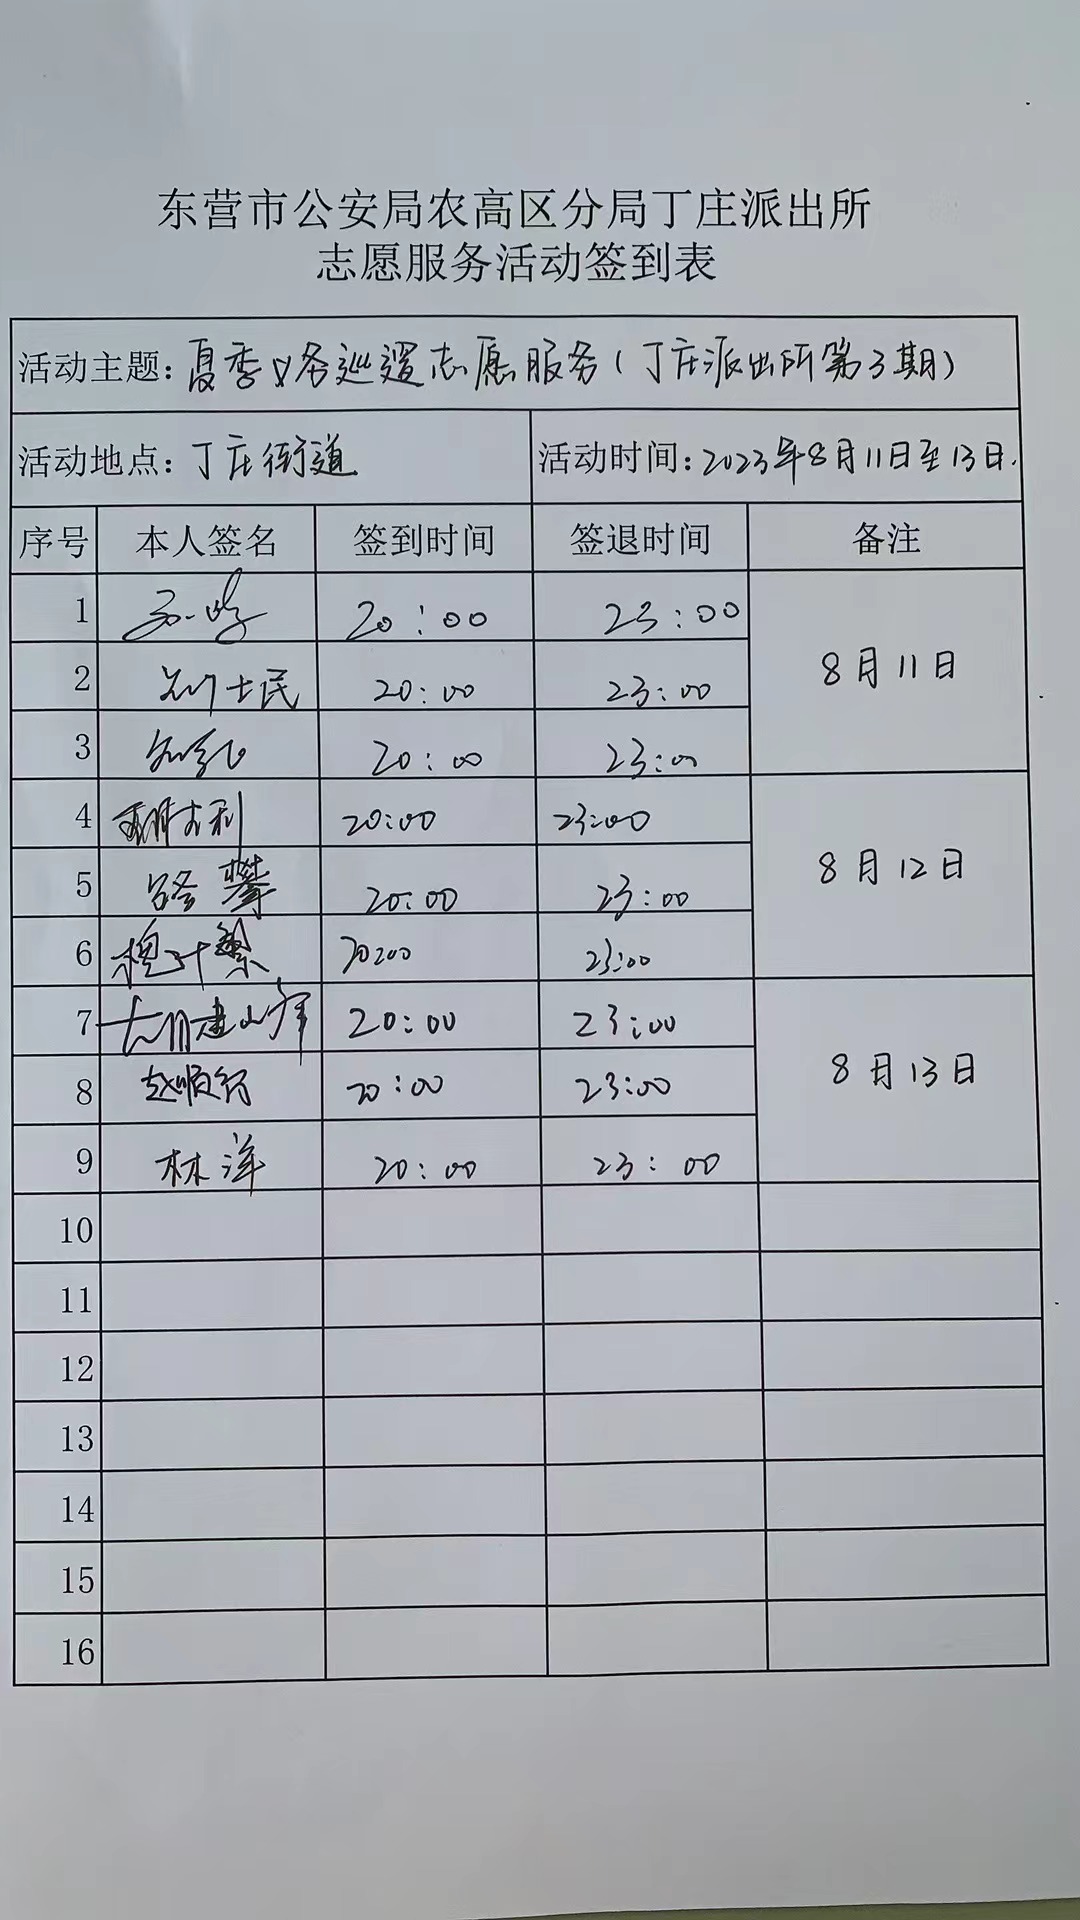 东营市公安局农高区分局丁庄派出所
志愿服务活动签到表
活动主题：夏季义务巡逻志愿服务（丁庄派出所第3期）
活动地点：丁庄街道 活动时间：2023年8月11日至13日.
序号 本人签名 签到时间 签退时间 备注
1 20:00 23:00
2 士民 20:00 23:00 8月11日
3 20:00 23:00
4 20:00 23:00
5 路攀 20:00 23:00 8月12日
6 20:00 23:00
7 20:00 23:00
8 赵顺行 20:00 23:00 8月13日
9 林洋 20:00 23:00
10
11
12
13
14
15
16